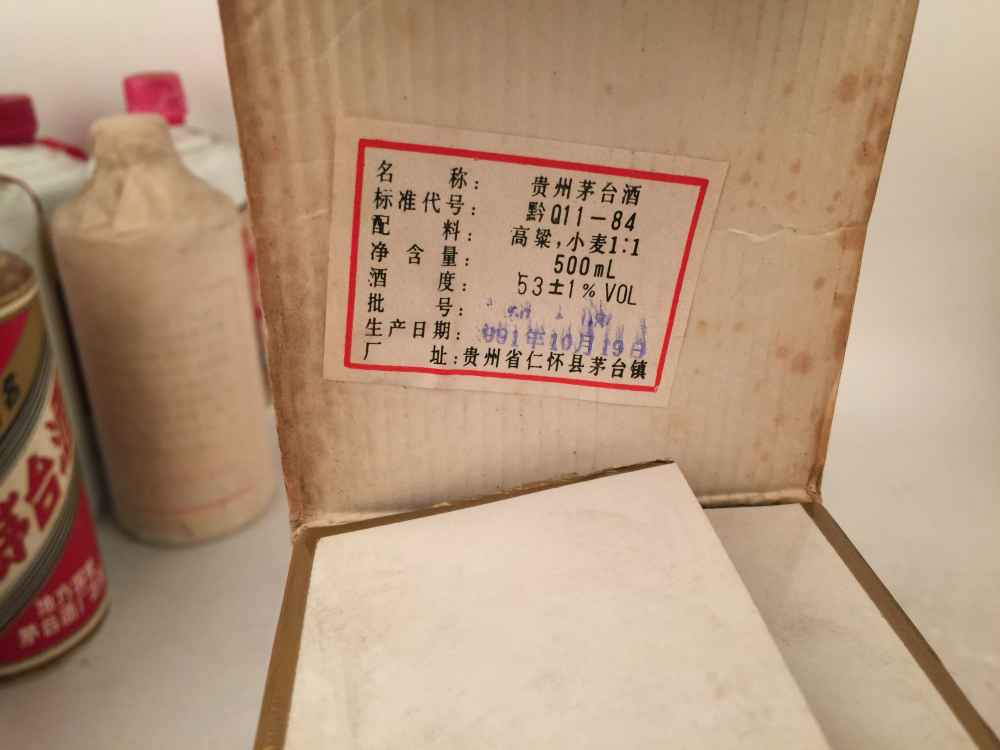 名 称： 贵州茅台酒
标准代号： 黔Q11－84
配 料： 高粱,小麦1:1
净 含 量： 500mL
酒 度： 53±1％VOL
批 号：
生产日期： 991年10月19日
厂 址：贵州省仁怀县茅台镇
茅台酒